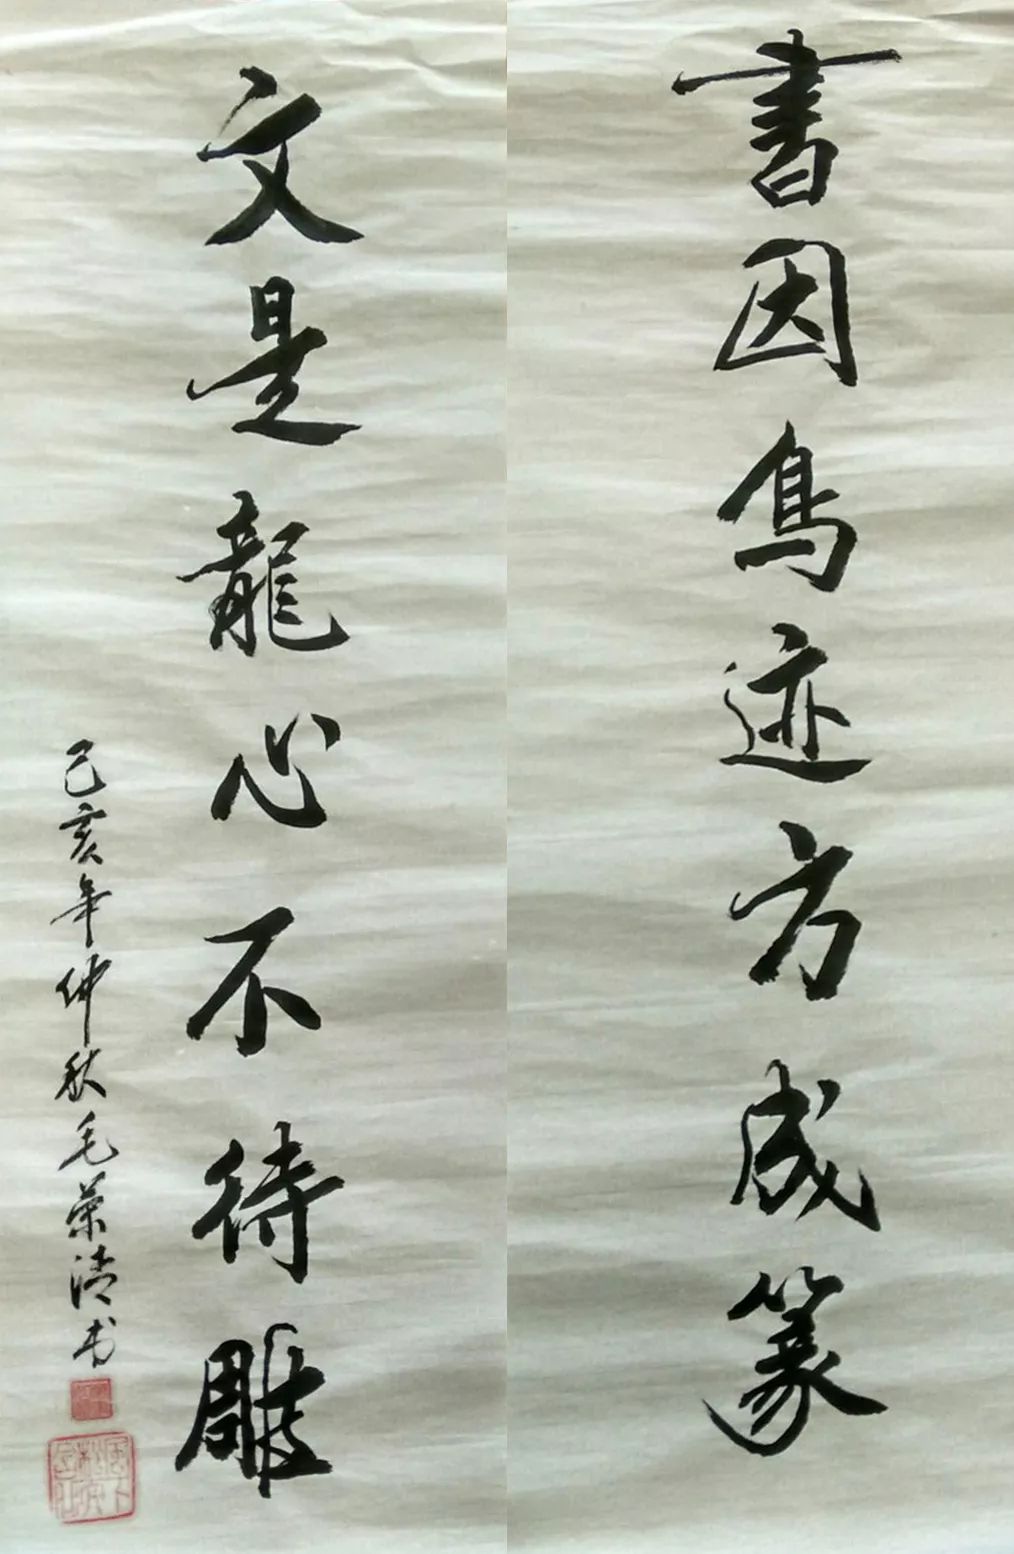 書因鳥迹方成篆
文是龍心不待雕
己亥年仲秋毛荣清书